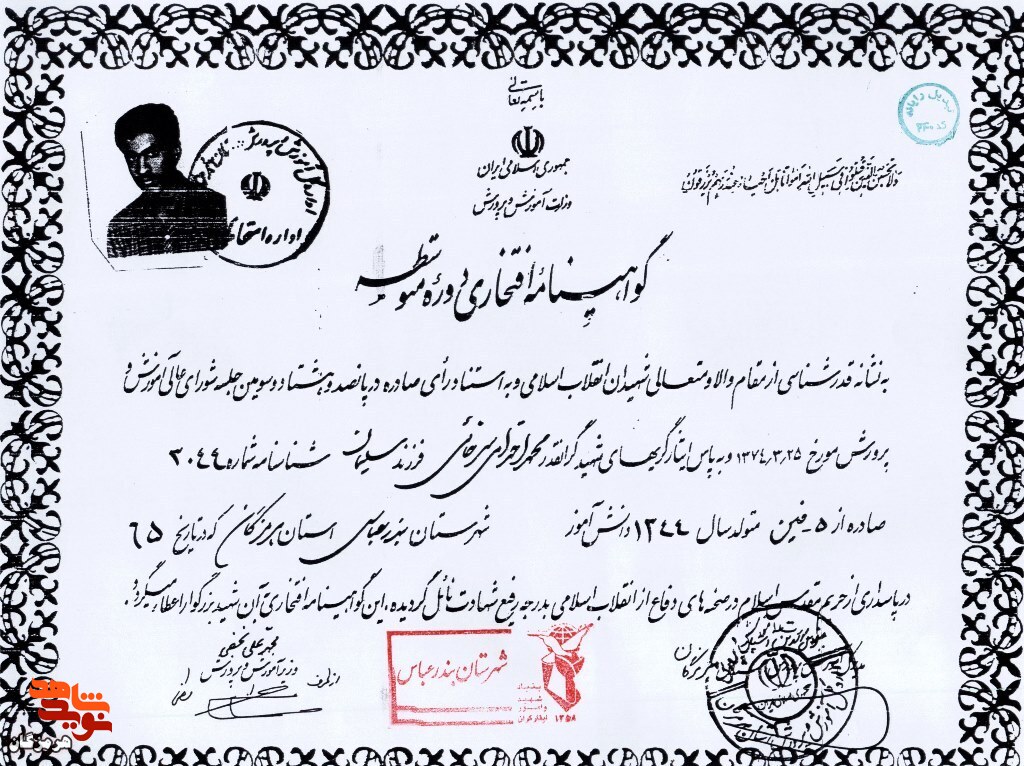 باسمه تعالی
جمهوری اسلامی ایران
وزارت آموزش و پرورش
ولا تحسبن الذین قتلوا فی سبیل الله امواتا بل احیاء عند ربهم یرزقون
اداره امتحانات
گواهینامهٔ افتخاری دورهٔ متوسطه
به نشانه قدرشناسی از مقام والا و متعالی شهیدان انقلاب اسلامی و به استناد رأی صادره در پانصد و هشتاد و سومین جلسه شورای عالی آموزش و
پرورش مورخ ۱۳۷۴٫۳٫۲۵ و به پاس ایثارگریهای شهید گرانقدر فرزند سلیمان شناسنامه شماره ۳۰۴۴
صادره از ۵-فین متولد سال ۱۳۴۴ دانش آموز شهرستان بندرعباس استان هرمزگان که در تاریخ ۶۵
در پاسداری از حریم مقدس اسلام در صحنه های دفاع از انقلاب اسلامی بدرجه رفیع شهادت نائل گردیده، این گواهینامهٔ افتخاری به آن شهید بزرگوار اعطاء میگردد.
محمد علی نجفی
وزیر آموزش و پرورش
از طرف
شهرستان بندرعباس
بنیاد
شهید
وامور
ایثارگران
۱۳۵۸
نوید شاهد
هرمزگان